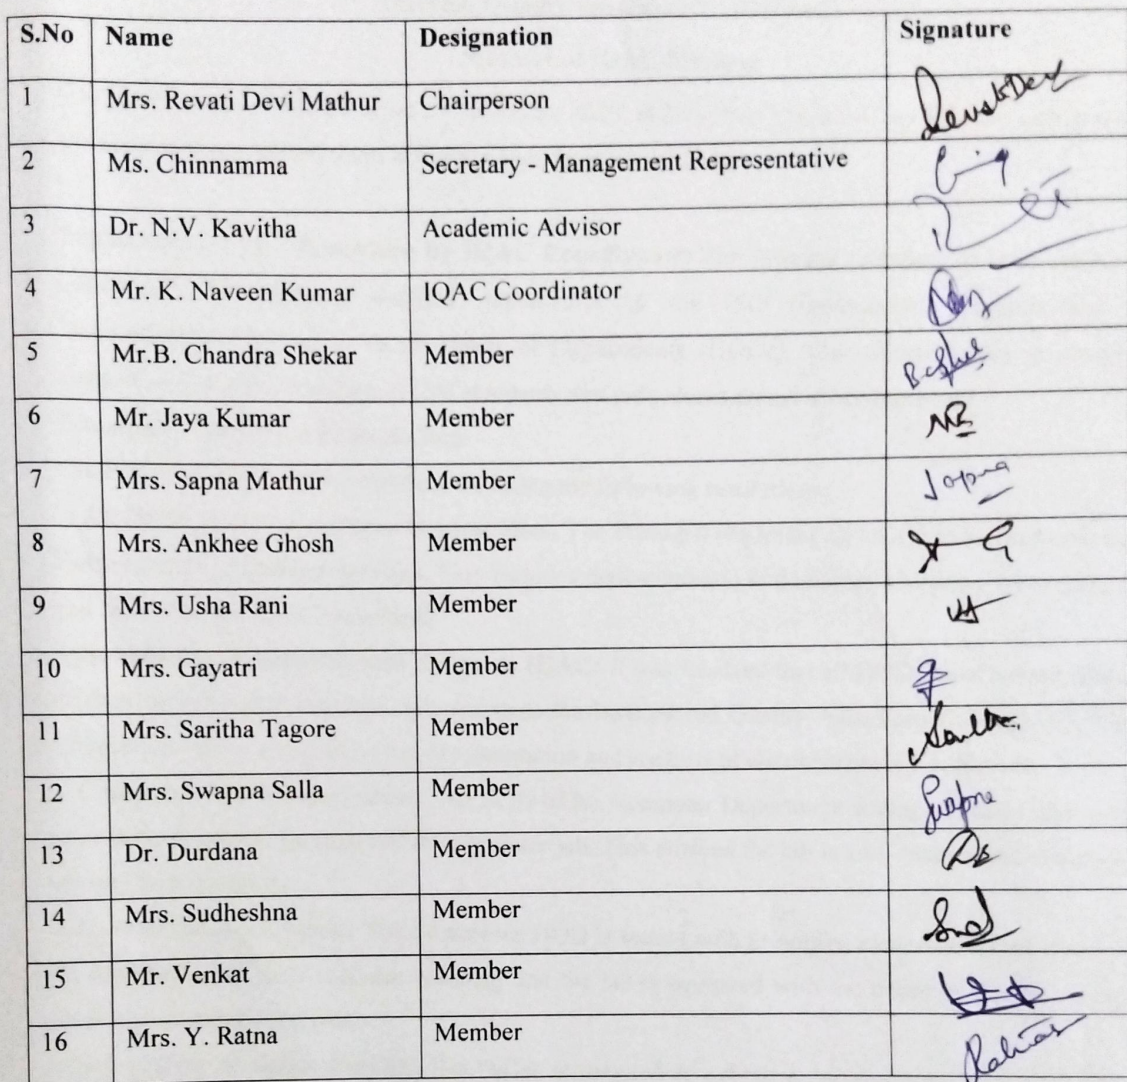 S.No Name Designation Signature
1 Mrs. Revati Devi Mathur Chairperson RevatiDevi
2 Ms. Chinnamma Secretary - Management Representative
3 Dr. N.V. Kavitha Academic Advisor
4 Mr. K. Naveen Kumar IQAC Coordinator
5 Mr.B. Chandra Shekar Member
6 Mr. Jaya Kumar Member
7 Mrs. Sapna Mathur Member Sapna
8 Mrs. Ankhee Ghosh Member
9 Mrs. Usha Rani Member
10 Mrs. Gayatri Member
11 Mrs. Saritha Tagore Member
12 Mrs. Swapna Salla Member Swapna
13 Dr. Durdana Member
14 Mrs. Sudheshna Member
15 Mr. Venkat Member
16 Mrs. Y. Ratna Member